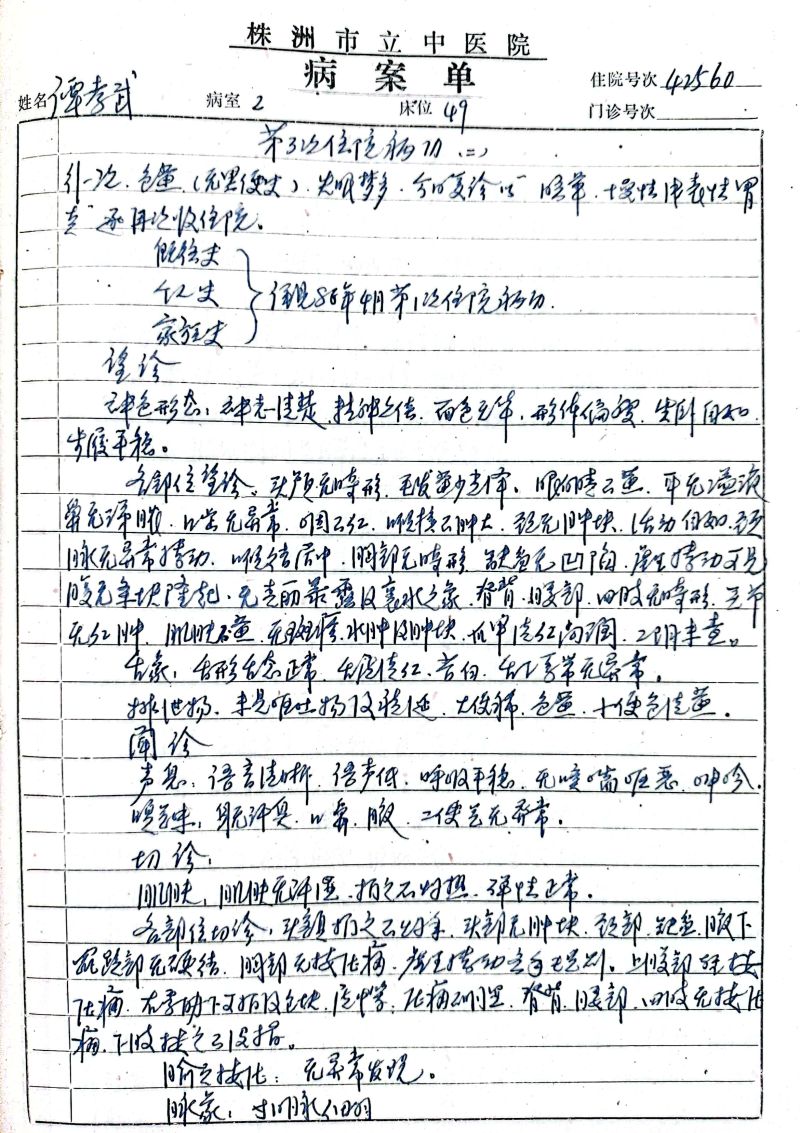 株洲市立中医院
病案单
住院号次 42560
姓名 谭孝武 病室 2 床位 49 门诊号次
第3次住院病历 (二)
行一次、色黄(无黑便史)、失眠梦多、今日复诊以"腹痛、慢性浅表性胃
炎"逐再次收住院。
既往史
个人史
家族史
详见86年4月第1次住院病历.
望诊
神色形态:神志清楚、精神乏倦、面色无华、形体偏瘦、坐卧自如、
步履平稳。
各部位望诊、头颅无畸形、毛发量少光泽、眼白睛不黄、耳无溢液
鼻无 口唇无异常、咽不红、喉核不肿大、颈无肿块、活动自如、颈
脉无异常搏动、喉结居中、胸部无畸形、缺盆无凹陷、虚里搏动可见
腹无包块隆起、无青筋暴露及裹水之象、脊背、腰部、四肢无畸形、关节
无红肿、肌肤不黄、无斑疹、水肿及肿块、爪甲淡红润、二阴未查。
舌象:舌形舌态正常、舌淡红、苔白、舌下络脉无异常。
排泄物、未见呕吐物及痰涎、大便稀、色黄、小便色清黄。
闻诊
声息:语言清晰、语声低、呼吸平稳、无咳喘呃恶、呻吟、
嗅气味:身无汗臭、口、鼻、腋、二便气无异常。
切诊:
肌肤:肌肤无汗湿、扪之不灼热、弹性正常。
各部位切诊:头额扪之不灼手、头部无肿块、颈部、缺盆、腋下
部无硬结、胸部无按压痛、虚里搏动 上腹部轻按
压痛、右季肋下可扪及包块、质中等、压痛不明显、脊背、腰部、四肢无按压
痛、下肢按之不没指。
俞穴按压:无异常发现。
脉象:寸口脉细弱